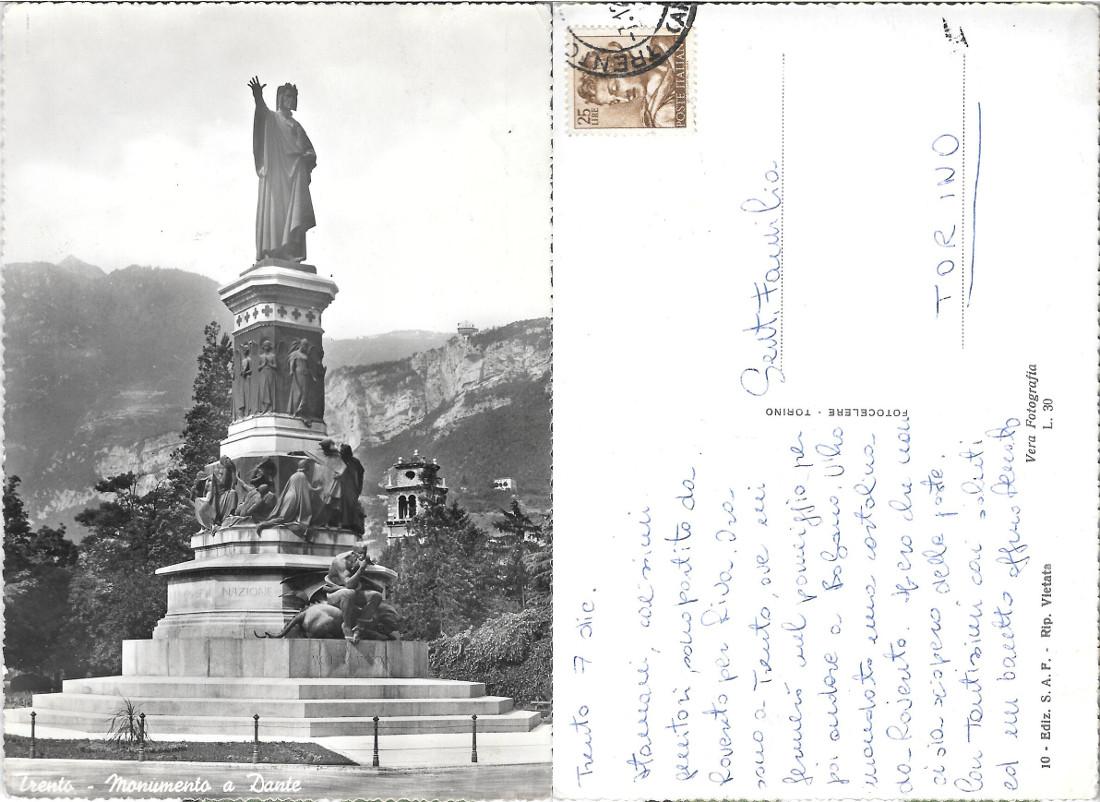 NAZIONE
Trento - Monumento a Dante
25
LIRE
POSTE ITALIANE
TRENTO
Gent. Famiglia
TORINO
FOTOCELERE - TORINO
Trento 7 dic.
Stamani, carissimi
genitori, sono partito da
Rovereto per Riva. Ora
sono a Trento, ove mi
fermerò nel pomeriggio per
poi andare a Bolzano. Vi ho
mandato una cartolina
da Rovereto. Spero che non
ci sia sciopero delle poste.
Con tantissimi cari saluti
ed un bacetto affmo Renato
Vera Fotografia
L. 30
10 - Ediz. S. A. F. - Rip. Vietata